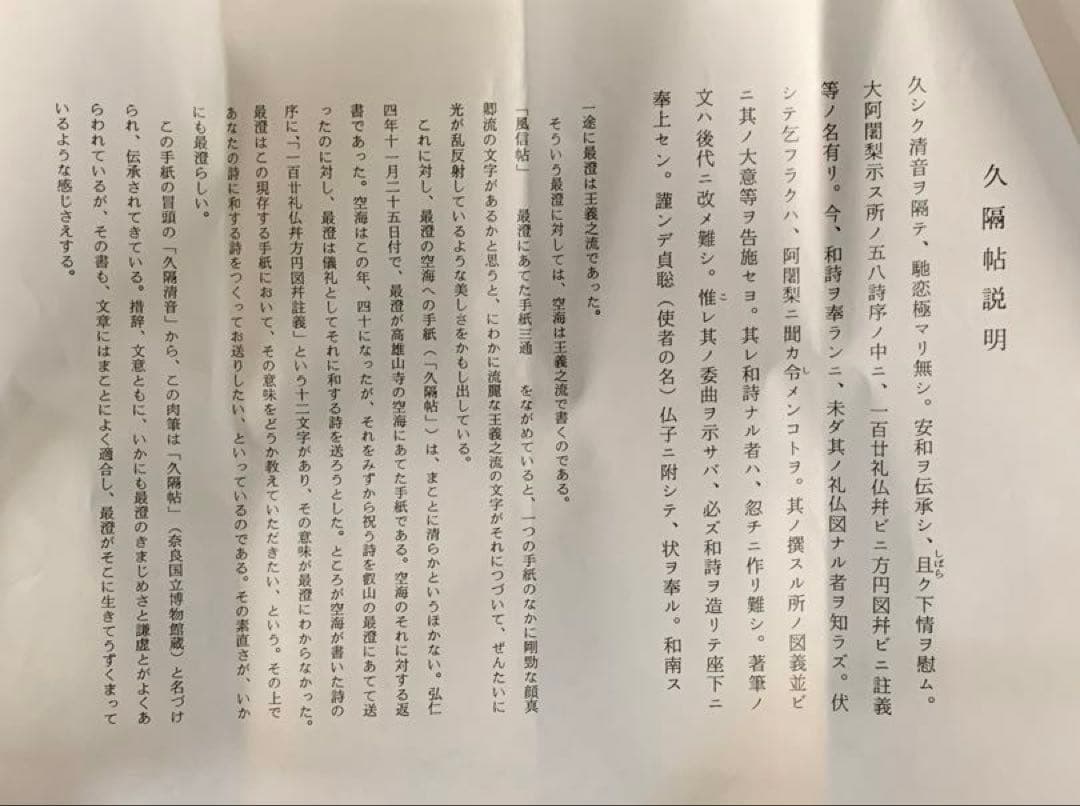 久隔帖説明
久シク清音ヲ隔テ、馳恋極マリ無シ。安和ヲ伝承シ、且ク下情ヲ慰ム。
しばら
大阿闍梨示ス所ノ五八詩序ノ中ニ、一百廿礼仏幷ビニ方円図幷ビニ註義
等ノ名有リ。今、和詩ヲ奉ランニ、未ダ其ノ礼仏図ナル者ヲ知ラズ。伏
シテ乞フラクハ、阿闍梨ニ聞カ令メンコトヲ。其ノ撰スル所ノ図義並ビ
し
ニ其ノ大意等ヲ告施セヨ。其レ和詩ナル者ハ、忽チニ作リ難シ。著筆ノ
文ハ後代ニ改メ難シ。惟レ其ノ委曲ヲ示サバ、必ズ和詩ヲ造リテ座下ニ
こ
奉上セン。謹ンデ貞聡(使者の名)仏子ニ附シテ、状ヲ奉ル。和南ス
一途に最澄は王義之流であった。
そういう最澄に対しては、空海は王義之流で書くのである。
「風信帖」 最澄にあてた手紙三通 をながめていると、一つの手紙のなかに剛勁な顔真
卿流の文字があるかと思うと、にわかに流麗な王義之流の文字がそれにつづいて、ぜんたいに
光が乱反射しているような美しさをかもし出している。
これに対し、最澄の空海への手紙(「久隔帖」)は、まことに清らかというほかない。弘仁
四年十一月二十五日付で、最澄が高雄山寺の空海にあてた手紙である。空海のそれに対する返
書であった。空海はこの年、四十になったが、それをみずから祝う詩を叡山の最澄にあてて送
ったのに対し、最澄は儀礼としてそれに和する詩を送ろうとした。ところが空海が書いた詩の
序に、「一百廿礼仏幷方円図幷註義」という十二文字があり、その意味が最澄にわからなかった。
最澄はこの現存する手紙において、その意味をどうか教えていただきたい、という。その上で
あなたの詩に和する詩をつくってお送りしたい、といっているのである。その素直さが、いか
にも最澄らしい。
この手紙の冒頭の「久隔清音」から、この肉筆は「久隔帖」(奈良国立博物館蔵)と名づけ
られ、伝承されてきている。措辞、文意ともに、いかにも最澄のきまじめさと謙虚とがよくあ
らわれているが、その書も、文章にはまことによく適合し、最澄がそこに生きてうずくまって
いるような感じさえする。